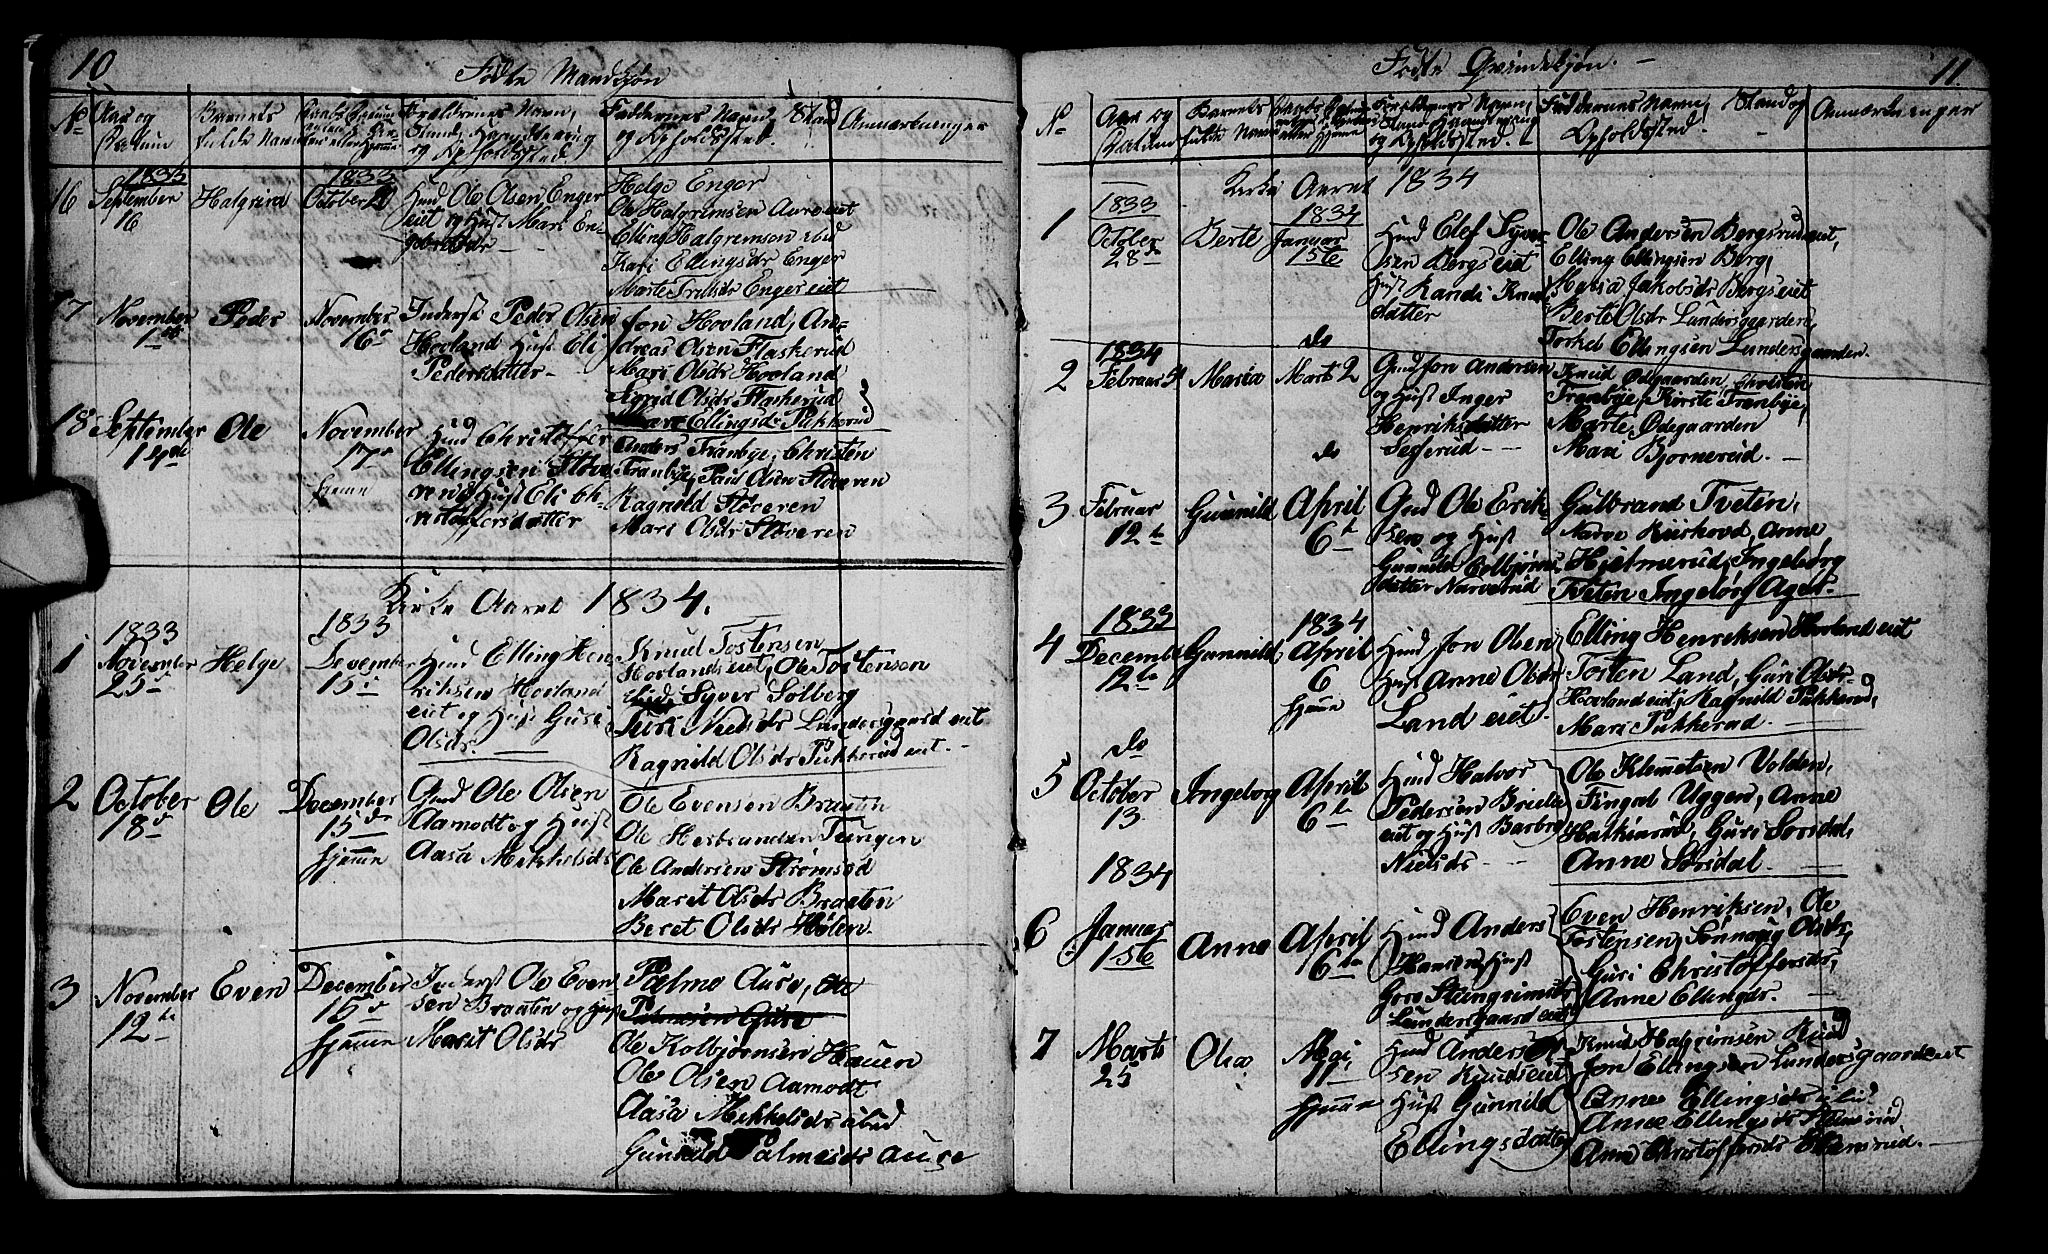 10
Fødte Mandkjøn
No
Aar og Datum
Barnets fulde Navn
Forældrenes Navn, Stand, Haandtering og Opholdssted
Faddernes Navn, Stand og Opholdssted.
Anmærkninger
16
1833
September 16
Halgrim
1833
October
Huusmd Ole Olsen Enger
eiet og Hust Mari En-
gebretsdr
Helge Enger
Ole Halgrimsen Aurs eiet
Elling Halgremson ibid
Kari Ellingsdr Enger
Marte Trulsdr Enger eiet
17
November 1ste
Peder
November 16
Inderst Peder Olsen
Hovland Hust Eli
Pedersdatter
Jon Hovland, An-
dreas Olsen Flaskerud
Mari Olsdr Hovland
Sigrid Olsdr Flaskerud
Mari Ellingsdr Pukkerud
18
September 14de
Ole
November 17
hjeme
Huusmd Christoffer
Ellingsen Støve-
ren & Hust Eli Ch-
ristoffersdatter
Anders Tranbye, Christen
Tranbye, Paul Olsen Støveren
Ragnild Støveren
Mari Olsdr Støveren
Kirke Aaret 1834.
1
1833
November 25
Helge
1833
December 15
Huusmd Elling Hen-
riksen Hovland
eiet og Hust Guri
Olsdr
Knud Tostensen
Hovlands eiet, Ole Tostensen
ibid Syver Solberg
Siri Nielsdr Lundersgaard eiet
Ragnild Olsdr Pukkerud eiet.
2
October 18
Ole
December 15
hjemme
Gmd Ole Olsen
Aamodt og Hust
Aasa Mikkelsdr
Ole Evensen Braaten
Ole Herbrandsen Tungen
Ole Andersen Strømsod
Marit Olsdr Braaten
Beret Olsdr Hølen
3
November 12te
Even
December 15
hjemme
Inderst Ole Even-
sen Braaten og Hust
Marit Olsdr
Palme Aurs, Ole
Palmesen Aurs
Ole Kolbjørnsen Hauen
Ole Olsen Aamodt
Aasa Mikkelsdr ibid
Gunild Palmesdr Aurs
11
Fødte Qvindekjøn.
No
Aar og Datum
Barnets fulde Navn
Forældrenes Navn, Stand, Haandtering og Opholdssted.
Faddernes Navn, Stand og Opholdssted.
Anmærkninger
Kirke Aaret 1834
1
1833
October 28de
Berte
1834
Januar 1ste
Huusmd Elef Syver-
sen Bergs eiet
Hust Randi Knuds-
datter
Ole Andersen Bergsrud eiet,
Elling Ellingsen Berg,
Maria Jakobsdr Bergs eiet
Berte Olsdr Lundersgaarden,
Torkel Ellingsen Lundersgaarden.
2
1834
Februar
Maria
do
Marts 2
Gmd Jon Andersen
og Hust Inger
Henriksdatter
Setserud
Knud Ødegaarden, Christen
Tranbye, Kirsti Tranbye,
Marte Ødegaarden
Mari Bjørnerud.
3
Februar 12te
Gunnild
do
April 6te
Gmd Ole Erik-
sen og Hust
Gunnild Colbjørns-
datter Narverud
Gulbrand Tveten,
Narve Ruskerod, Anne
Hjelmerud, Ingeborg
Tveten Ingebør Ager.
4
1833
December 12te
Gunnild
1834
April 6
hjeme
Huusmd Jon Olsen
Hust Anne Olsdr
Land eiet.
Elling Henriksen Hovland eiet
Tosten Land, Guri Olsdr
Hovland eiet, Ragnild Pukkerud,
Mari Pukkerud.
5
do
October 13
Ingeborg
April 6te
Huusmd Halvor
Pedersen Brelie
eiet og Hust Barbro
Nielsdr
Ole Klemetsen Volden,
Fingal Uggen, Anne
Hathinrud, Guri Sorsdal,
Anne Sorsdal.
6
1834
Januar 1ste
Anne
April 6te
Huusmd Anders
Hansen, Hust
Goro Steingrimsdtr
Lundersgaard eiet
Even Henriksen, Ole
Tostensen, Sønnøug Olsdr,
Guri Christoffersdr,
Anne Ellingdr.
7
Marts 25
Olia
Mai 11
hjemme
Huusmd Anders Ol-
sen Ruuds eiet
Hust Gunnild
Ellingsdatter
Knud Halgrimsen Ruud
Jon Ellingsen Lundersgaard eiet
Anne Ellingsdr ibid
Anne Ellingsdr
Anne Christoffersdr